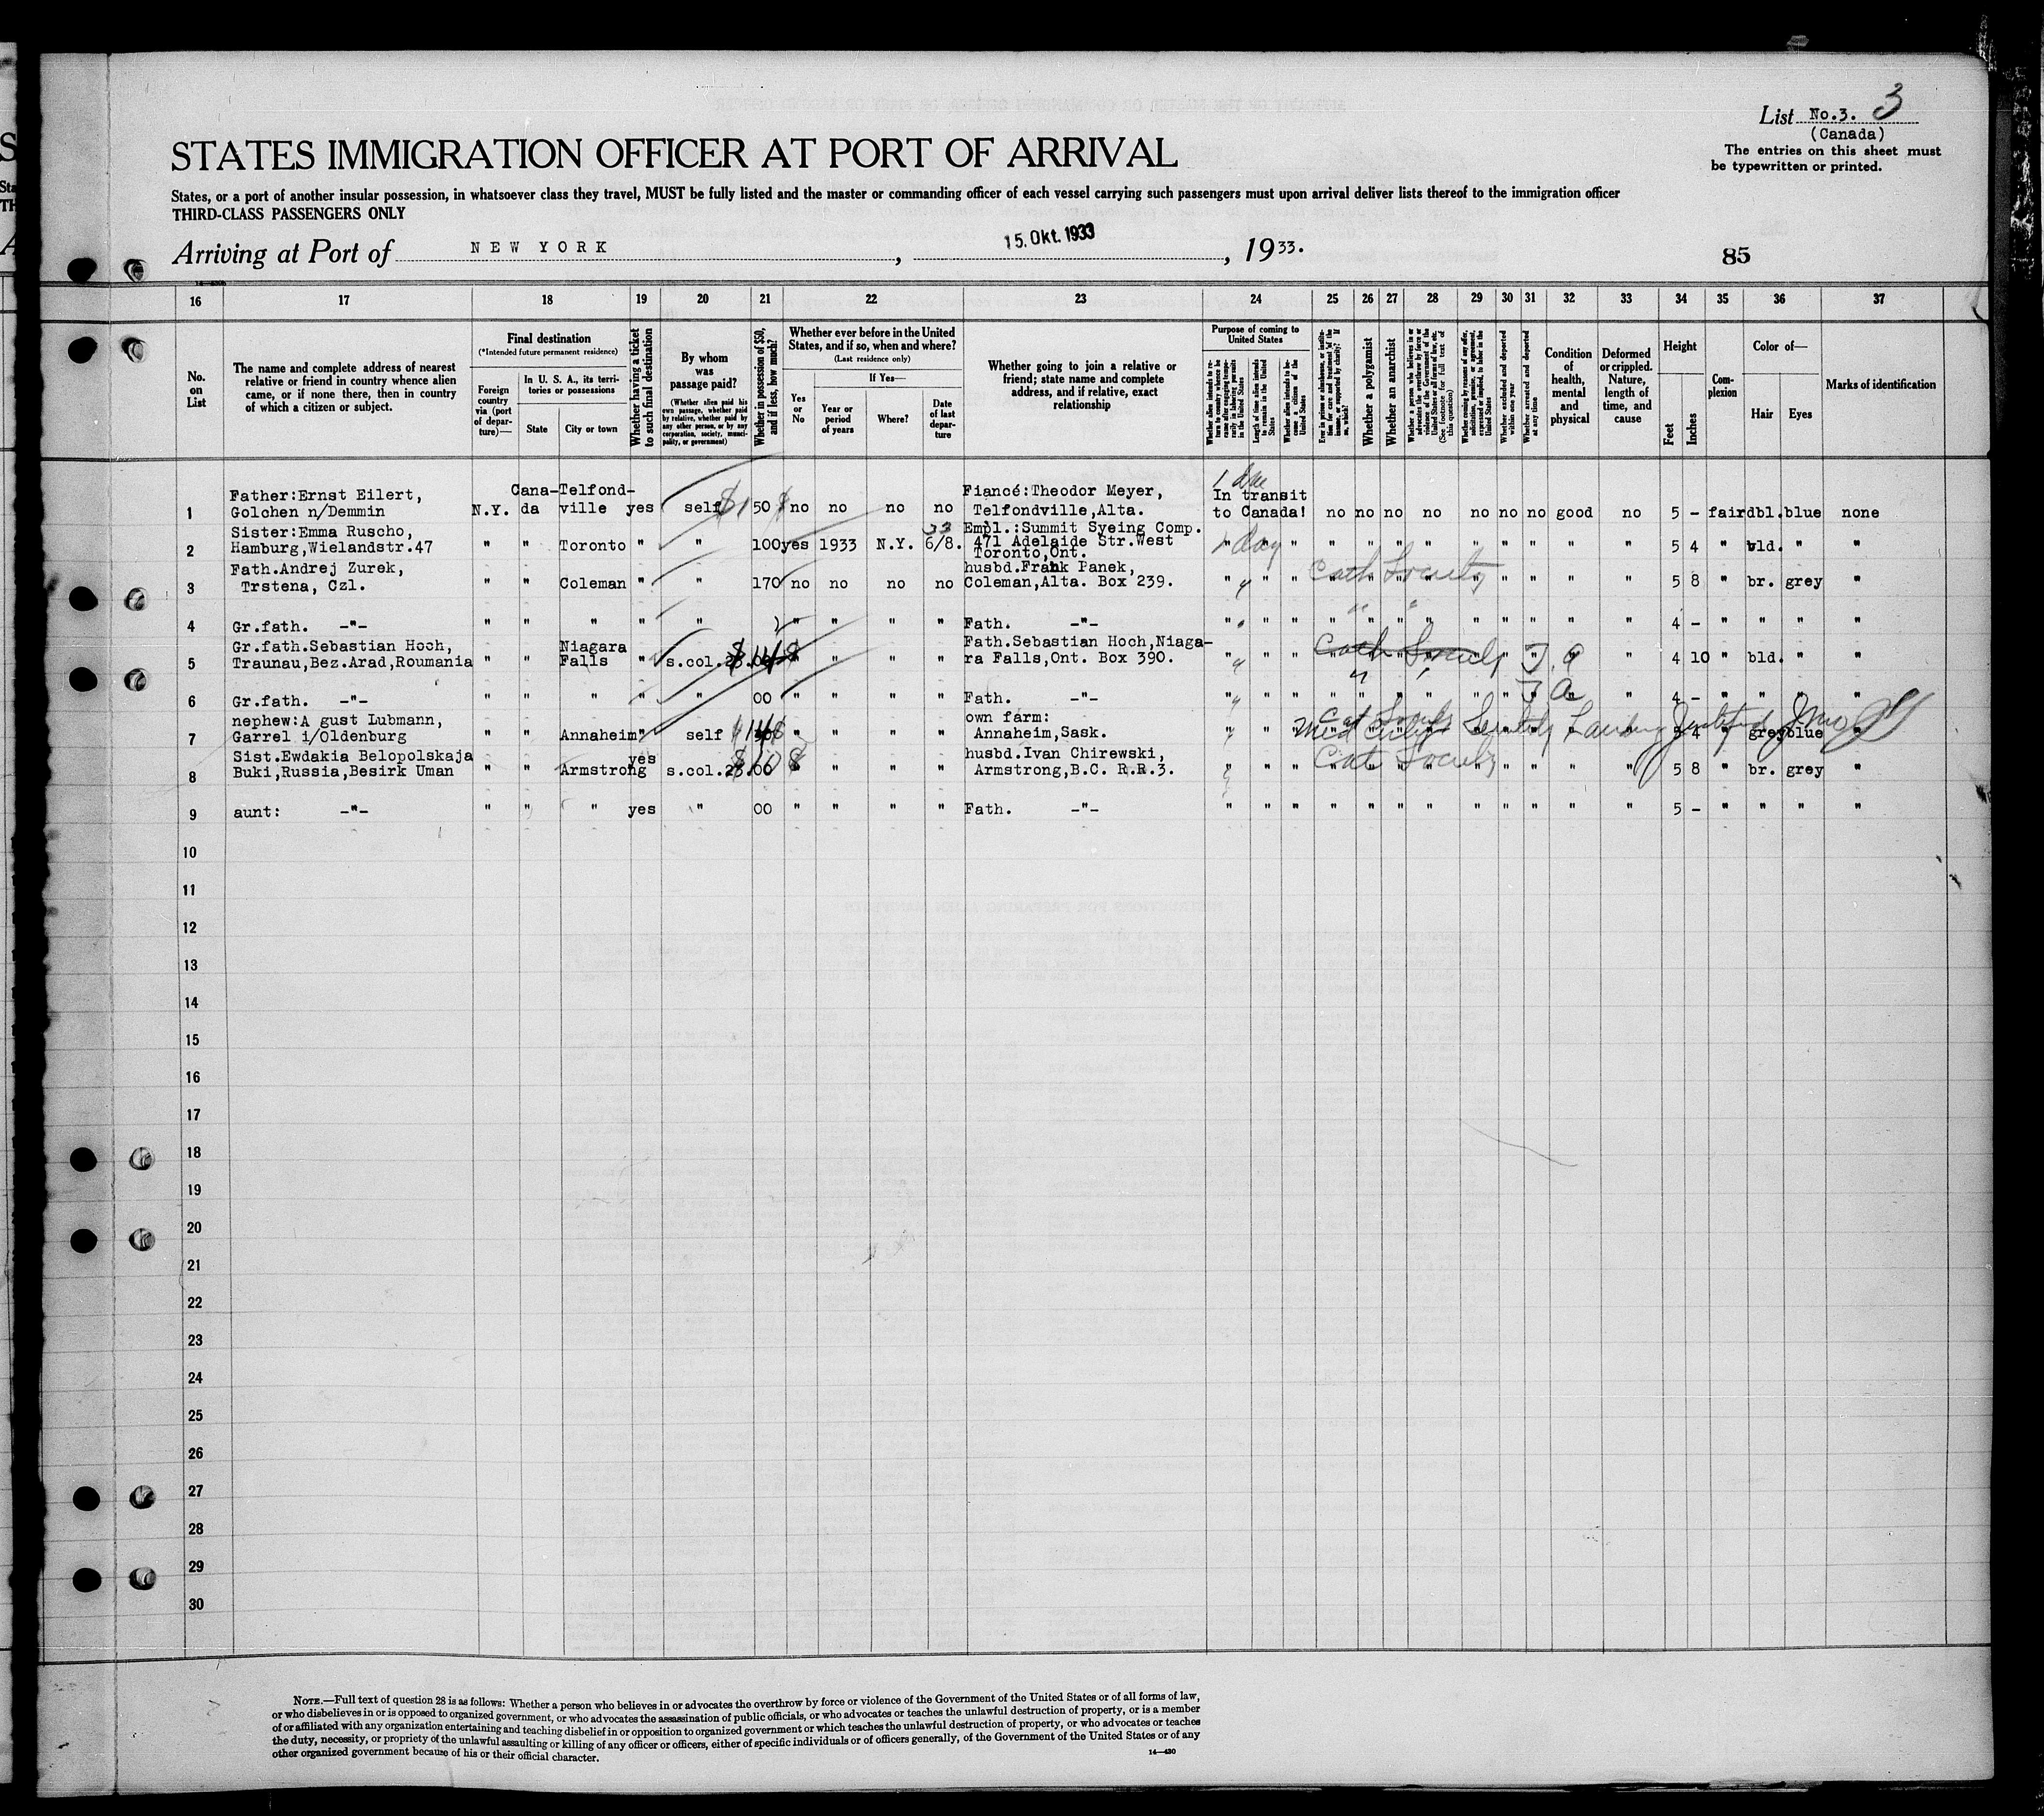 List No.3. 3
(Canada)
The entries on this sheet must
be typewritten or printed.
STATES IMMIGRATION OFFICER AT PORT OF ARRIVAL
States, or a port of another insular possession, in whatsoever class they travel, MUST be fully listed and the master or commanding officer of each vessel carrying such passengers must upon arrival deliver lists thereof to the immigration officer
THIRD-CLASS PASSENGERS ONLY
Arriving at Port of NEW YORK, 15. Okt. 1933, 1933.
85
16 17 18 19 20 21 22 23 24 25 26 27 28 29 30 31 32 33 34 35 36 37
No.
on
List
The name and complete address of nearest
relative or friend in country whence alien
came, or if none there, then in country
of which a citizen or subject.
Final destination
(*Intended future permanent residence)
Foreign
country
via (port
of depar-
ture)—
In U. S. A., its terri-
tories or possessions
State
City or town
Whether having a ticket
to such final destination
By whom
was
passage paid?
(Whether alien paid his
own passage, whether paid
by relative, whether paid by
any other person, or by any
corporation, society, munici-
pality, or government)
Whether in possession of $50,
and if less, how much?
Whether ever before in the United
States, and if so, when and where?
(Last residence only)
Yes
or
No
If Yes—
Year or
period
of years
Where?
Date
of last
depar-
ture
Whether going to join a relative or
friend; state name and complete
address, and if relative, exact
relationship
Purpose of coming to
United States
Whether alien intends to re-
turn to country whence he
came after engaging tempo-
rarily in laboring pursuits
in the United States
Length of time alien intends
to remain in the United
States
Whether alien intends to be-
come a citizen of the
United States
Whether a polygamist
Whether an anarchist
Whether a person who believes in or
advocates the overthrow by force or
violence of the Government of the
United States or all forms of law, etc.
(See footnote for full text of
this question)
Whether excluded and deported
within one year
Whether arrested and deported
at any time
Condition
of
health,
mental
and
physical
Deformed
or crippled.
Nature,
length of
time, and
cause
Height
Feet
Inches
Com-
plexion
Color of—
Hair
Eyes
Marks of identification
1 Father:Ernst Eilert, Cana- Telfond- Fiancé:Theodor Meyer, In transit
Golchen n/Demmin N.Y. da ville yes self 50 no no no no Telfondville,Alta. to Canada! no no no no no no no good no 5 - fair dbl. blue none
2 Sister:Emma Ruscho, Empl.:Summit Syeing Comp.
Hamburg,Wielandstr.47 " " Toronto " " 100 yes 1933 N.Y. 6/8. 471 Adelaide Str.West " " " " " " " " " " " " 5 4 " bld. " "
Toronto,Ont.
3 Fath.Andrej Zurek, husbd.Frank Panek,
Trstena, Czl. " " Coleman " " 170 no no no no Coleman,Alta. Box 239. " " " " " " " " " " " " 5 8 " br. grey "
Cath Society
4 Gr.fath. -"- " " " " " " " " " Fath. -"- " " " " " " " " " " " " 4 - " " " "
5 Gr.fath.Sebastian Hoch, Niagara Fath.Sebastian Hoch,Niaga-
Traunau,Bez.Arad,Roumania " " Falls " s.col. " " " " ra Falls,Ont. Box 390. " " " " " " " " " " " 4 10 " bld. " "
Cath Society
6 Gr.fath. -"- " " " " " 00 " " " " Fath. -"- " " " " " " " " " " " 4 - " " " "
7 nephew:A gust Lubmann, own farm:
Garrel i/Oldenburg " " Annaheim " self " " " " Annaheim,Sask. " " " 5 4 " grey blue "
8 Sist.Ewdakia Belopolskaja yes husbd.Ivan Chirewski,
Buki,Russia,Besirk Uman " " Armstrong s.col. 00 " " " " Armstrong,B.C. R.R.3. " " " " " " " " " " " " 5 8 " br. grey "
Cat Society
9 aunt: -"- " " " yes " 00 " " " " Fath. -"- " " " " " " " " " " " " 5 - " " " "
10
11
12
13
14
15
16
17
18
19
20
21
22
23
24
25
26
27
28
29
30
NOTE.—Full text of question 28 is as follows: Whether a person who believes in or advocates the overthrow by force or violence of the Government of the United States or of all forms of law,
or who disbelieves in or is opposed to organized government, or who advocates the assassination of public officials, or who advocates or teaches the unlawful destruction of property, or is a member
of or affiliated with any organization entertaining and teaching disbelief in or opposition to organized government or which teaches the unlawful destruction of property, or who advocates or teaches
the duty, necessity, or propriety of the unlawful assaulting or killing of any officer or officers, either of specific individuals or of officers generally, of the Government of the United States or of any
other organized government because of his or their official character.
14—430